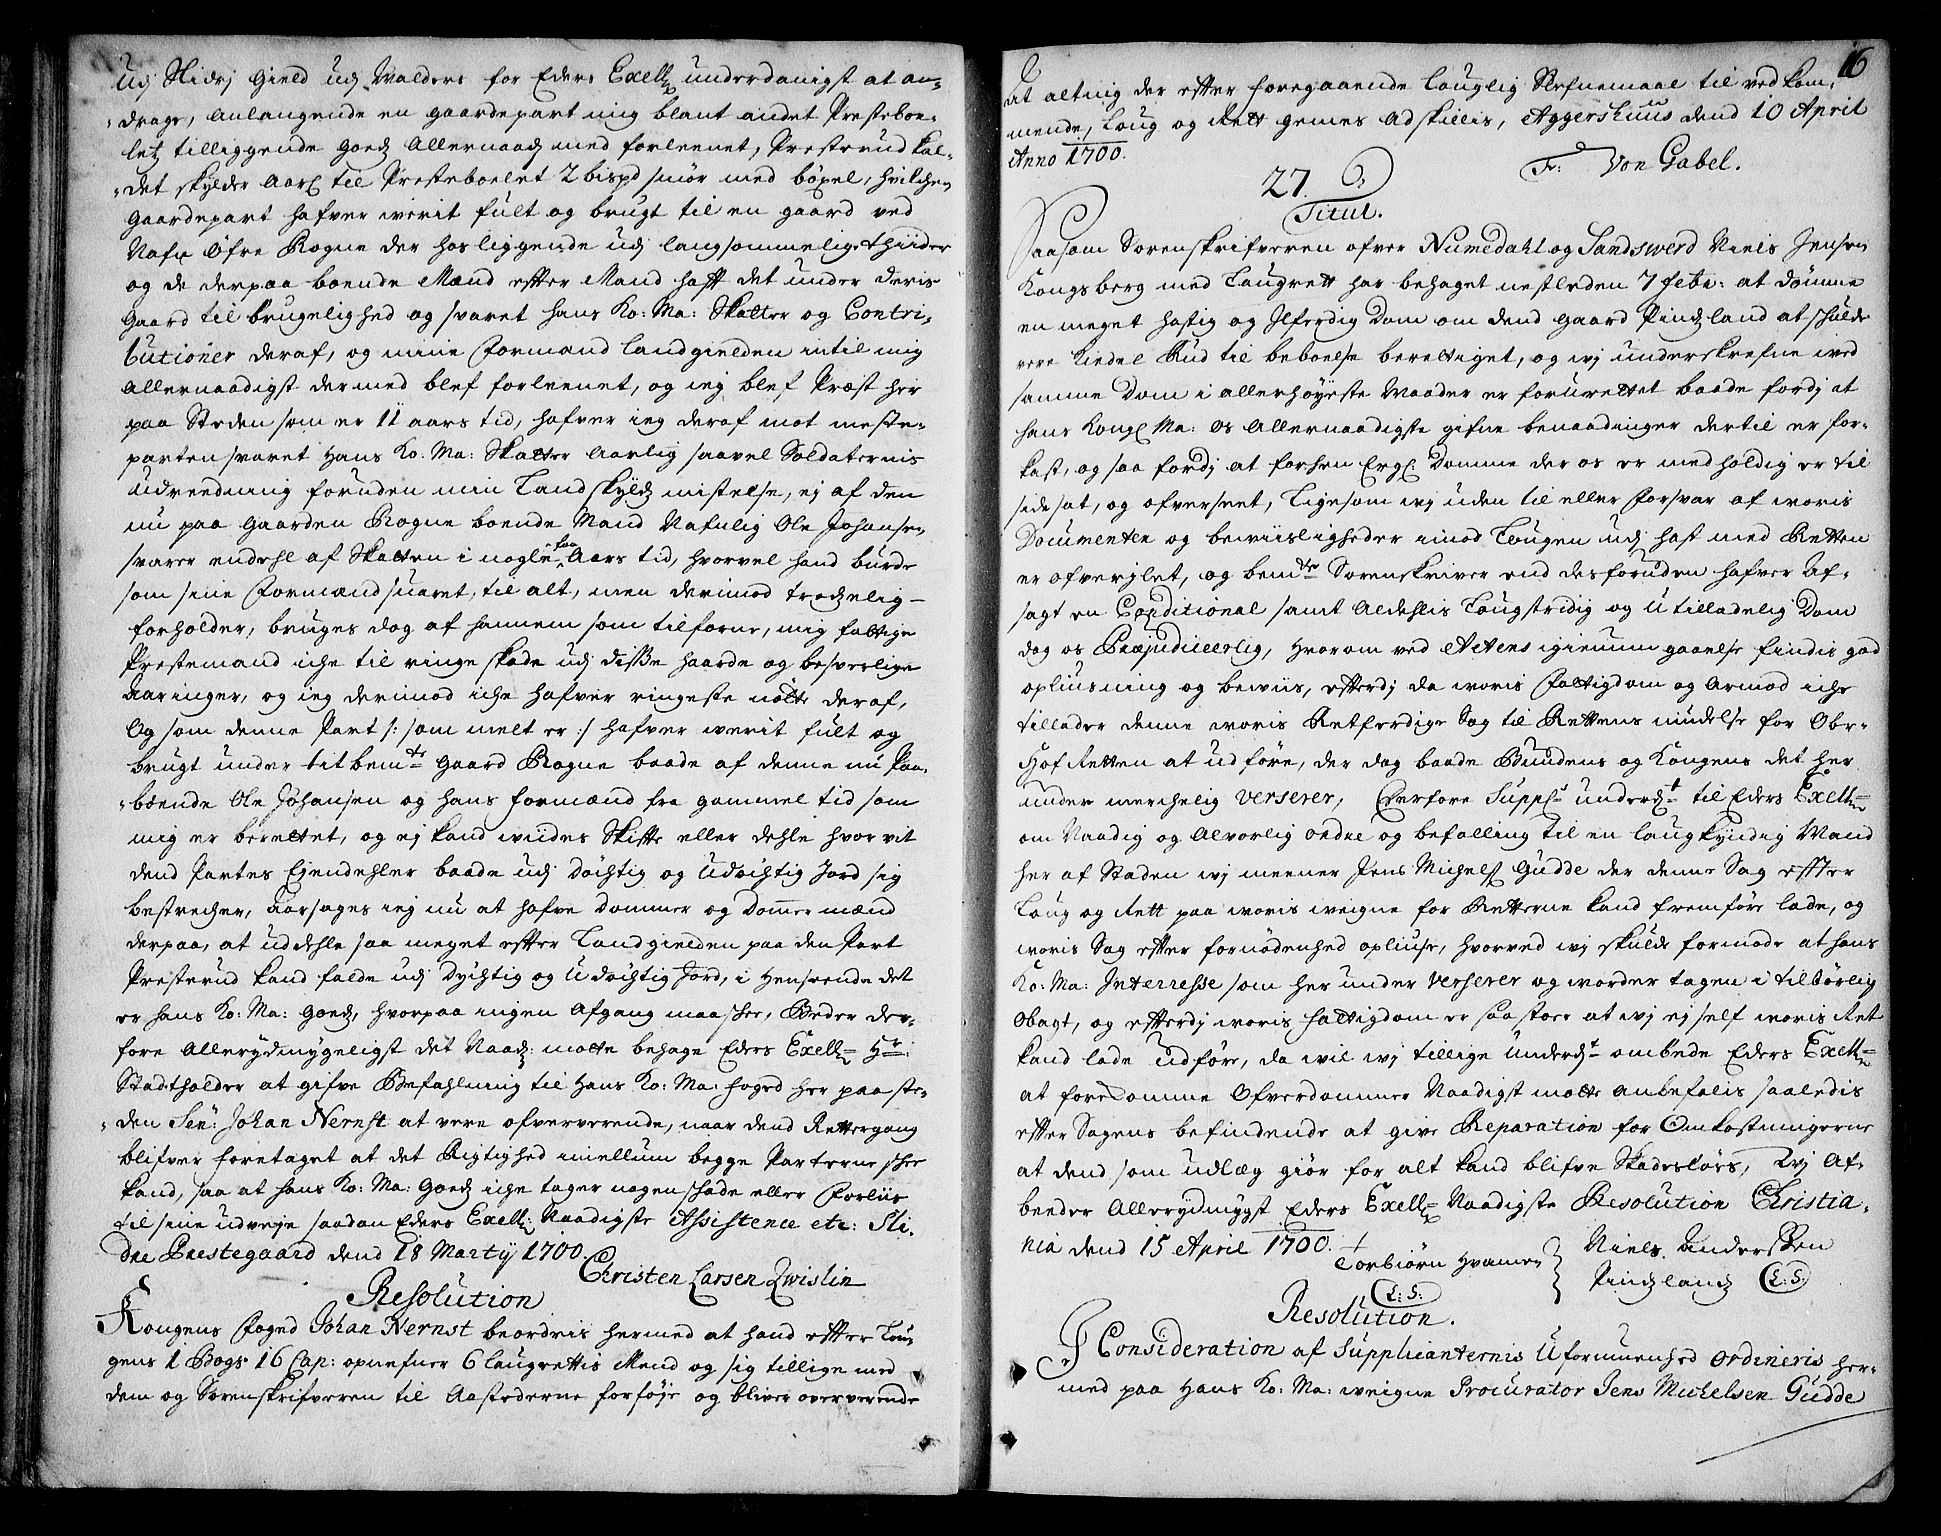 udj Slidrj Gield udj Walders for Eders Exell: underdanigst at an-
drage, anlangende en gaardepart mig blant andet Presteboe-
letz tilliggende godz Allernaad: med forleenet, Presterud kal-
det skylder Aarl: til Presteboelet 2 bispd smör med böxel, hvilchen
Gaardepart hafver werit fült og brugt til en gaard ved
Nafn Öfre Rogne der hosliggende udj langsommelige thiider
og de derpaa boende Mænd effter Mand hafft det under deris
Gaard til brugelighed og svaret hans Ko: Ma: Skatter og Contri-
butioner deraf, og mine Formænd landgielden intil mig
Allernaadigst dermed blef forleenet, og ieg blef Præst her
paa Steden som er 11 aars tid, hafver ieg deraf mot meste-
parten svaret Hans Ko: Ma: Skatter Aarlig saavel Soldaternis
Udreedning foruden min Landskyldz mistelse, ej af den
nu paa Gaarden Rogne boende Mand Nafnlig Ole Johansen
svarer endehl af Skatten i nogle faa Aars tid, hvorvel hand burde
som sine Formænd svaret, til alt, men derimod trodzelig
forholder, bruges dog af hannem som tilforne, mig fattige
Prestemand iche til ringe skade udj disse haarde og besverlige
Aaringer, og ieg derimod iche hafver ringeste nötte deraf,
Og som denne Part /: som melt er :/ hafver werit fült og
brugt under titbem:te Gaard Rogne baade af denne nu Paa-
boende Ole Johansen og hans formænd fra gammel tid som
mig er berettet, og ej kand wiides Skifte eller dehle hvor vit
dend Partes Eiendehler baade udj döchtig og Udöchtig Jord sig
bestrecher, Aarsages iej nu at hafve Dommer og Dommermænd
derpaa, at uddehle saa meget effter Landgielden paa den Part
Presterud kand falde udj Dychtig og Udöchtig Jord, i Henseende det
er hans Ko: Ma: Godz, hvorpaa ingen Afgang maa schee, Beder der-
fore Allerydmygeligst det Naad: motte behage Eders Exell: Hr:
Stadtholder at gifve Befahlning til Hans Ko: Ma: foged her paa ste-
den Sen: Johan Nernst at vere ofververende, naar dend Rettergang
blifver foretaget at det Rigtighed imellum begge Parterne schee
kand, saa at hans Ko: Ma: Godz iche tager nogen schade eller Forliis
til sine udveje saadan Eders Exell: Naadigste Assistence etc: Sli-
dre Prestegaard dend 18 Martij 1700.
Christen Larsen Zwislin
Resolution
Kongens Foged Johan Nernst beordris hermed at hand effter Lou-
gens 1 Bogs 16 Cap: opnefner 6 laugrettis Mend og sig tillige med
dem og Sorenskrifveren til Aastederne forföje og bliver oververende
16
At altnig der effter foregaaende lauglig Stefnemaal til vedkom-
mende, Loug og Rett gemes Adskillis, Aggershuus dend 10 April
Anno 1700.
Fr: Von Gabel.
27.
Titul.
Saasom Sorenskrifveren ofver Numedahl og Sandswerd Niels Jensen
Kongsberg med Laugrett har behaget nestleden 7 febr: at dömme
en meget hastig og Ilferdig Dom om dend gaard Pindzland at schulde
vere Liedel Rud til beboelse berettiget, og wj underskrefne wed
samme Dom i allerhöyeste Maader er forurettet baade fordj at
hans Kongl: Ma: os Allernaadigste gifne benaadinger dertil er for-
kast, og saa fordj at forhen Ergl: Domme der os er medholdig er til
side sat, og ofverseet, Ligesom wj uden til eller forsvar af woris
Documenter og bewiisligheder imod Lougen udj hast med Retten
er ofverjlet, og bem:te Sorenskriver end desforuden hafver Af-
sagt en Conditional samt Aldehlis Lougstridig og Utilladelig Dom
dog os Præjudiceerlig, Hvorom ved Actens igienumgaaelse findis god
opliusning og bewiis, efterdj da woris Fattigdom og Armod iche
tillader denne woris Retferdige Sag til Rettens nudelse for Ober-
Hof Retten at udföre, der dog baade Bundens og Kongens det her
under merchelig Verserer, Derfore Suppl:s underd:t til Eders Exell:
om Naadig og Alvorlig ordre og befalling til en laugkyndig Mand
her af Staden wj meener Jens Michels: Gudde der denne Sag effter
Loug og Rett paa woris weigne for Retterne kand fremföre lade, og
woris Sag effter fornödenhed opliuse, hvorved wj skulde formode at hans
Ko: Ma: Interresse som her under Verserer og worder tagen i tilbörlig
Obagt, og efterdj woris fattigdom er saa stoer at wj ej self woris Ret
kand lade Udföre, da wil wj tillige Underd:t ombede Eders Exell:
at forekomme Ofverdommer Naadigst motte Anbefalis saaledis
effter Sagens befindende at give Reparation for Omkostningerne
at dend som udlæg giör for alt kand blifve Skadeslöes, wj Af-
beeder Allerydmygt Eders Exell: Naadigste Resolution Christia-
nia dend 15 April 1700.
Torbiörn Hvamen
Niels Anderssen
Pindzlandz (L:S:)
(L:S:)
Resolution.
I Consideration af Supplicanternis Uformuenhed Ordineris her-
med paa Hans Ko: Ma: weigne Procurator Jens Michelsen Gudde